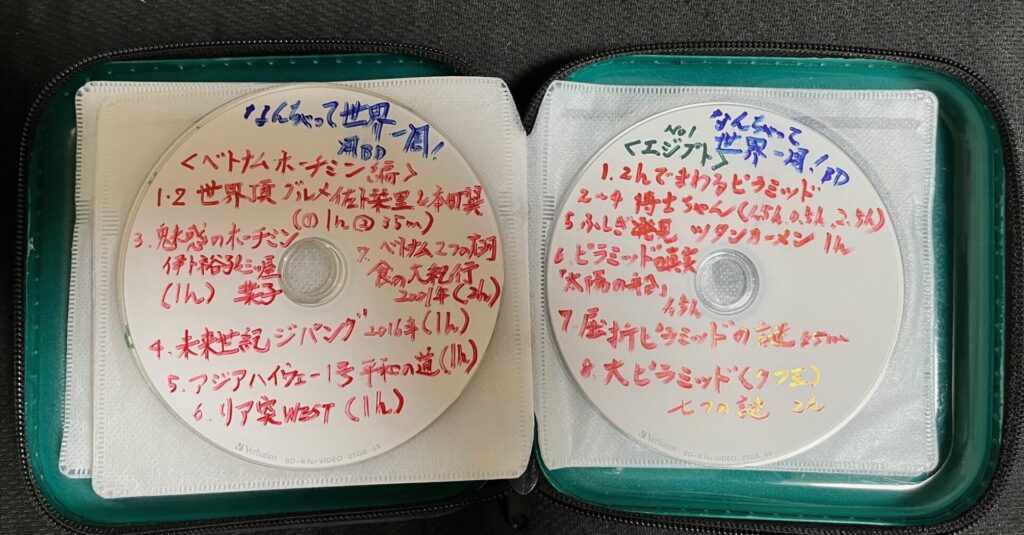 なんちゃって世界
一周!
BD
<ベトナムホーチミン編>
1・2 世界頂グルメ 佐ト栞里と本田翼
(① 1h ② 35m)
3. 魅惑のホーチミン
伊ト裕子と三ッ屋
(1h) 葉子
4. 未来世紀ジパング 2016年 (1h)
5. アジアハイウェー1号 平和の道 (1h)
6. リア突WEST (1h)
7. ベトナム 2つの大河
食の大紀行
2021年 (2h)
Verbatim BD-R for VIDEO 25GB 6X
なんちゃって
世界一周! BD
No1
<エジプト>
1. 2hでまわるピラミッド
2〜4 博士ちゃん (1.5h, 0.5h, 2.5h)
5 ふしぎ発見 ツタンカーメン 1h
6 ピラミッドの真実
"太陽の船"
1.5h
7. 屈折ピラミッドの謎 85m
8. 大ピラミッド (クフ王)
七つの謎 2h
Verbatim BD-R for VIDEO 25GB 6X